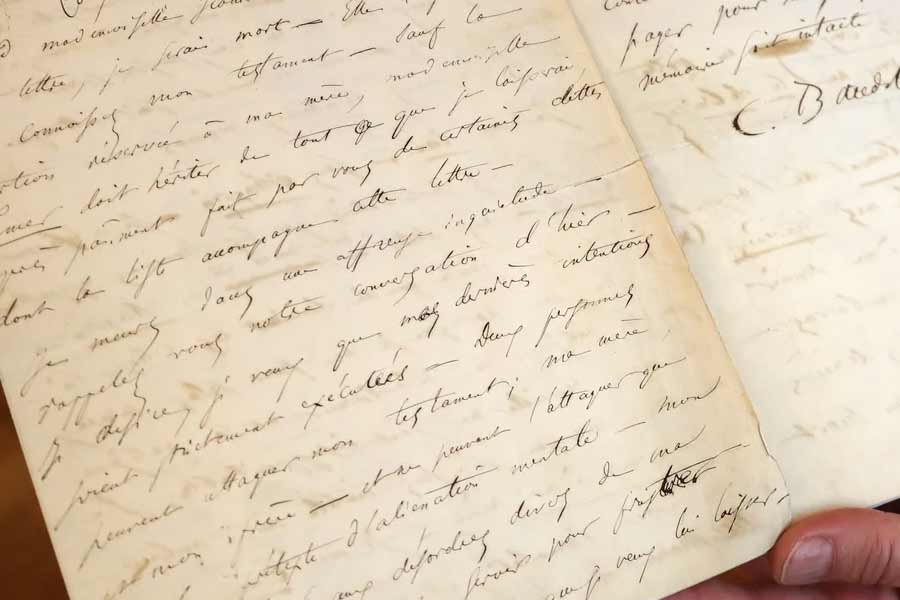 mademoiselle
lettre, je serai mort — Elle
connaissez mon testament — Sauf la
rtion réservée à ma mère, mademoiselle
mer doit hériter de tout ce que je laisserai,
près paiement fait par vous de certaines dettes
dont la liste accompagne cette lettre —
Je meurs dans une affreuse inquiétude —
rappelez vous notre conversation d'hier —
Je désire, je veux que mes dernières intentions
soient strictement exécutées — Deux personnes
peuvent attaquer mon testament; ma mère,
et mon frère — et ne peuvent l'attaquer que
prétexte d'aliénation mentale — mon
aux désordres divers de ma
servir pour frustrer
que je veux lui laisser —
payer pour
mémoire soit intacte
C. Baudel